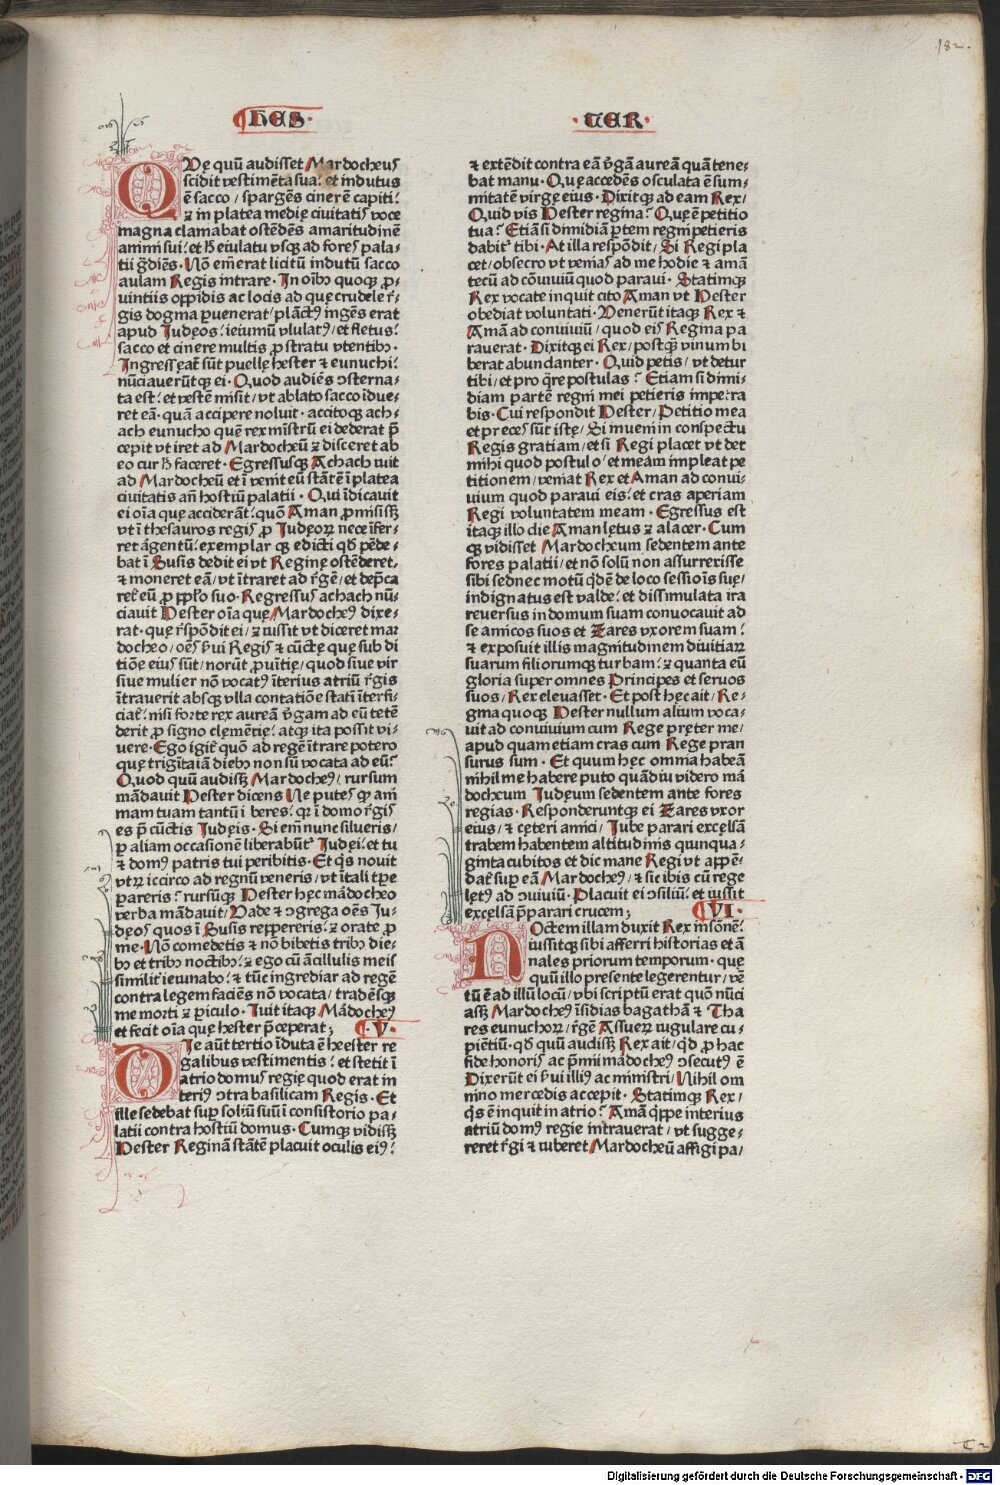 182.
HES· ·TER·
QVę quū audisset Mardocheus
scidit vestimēta sua: et indutus
ē sacco / spargēs cinerē capiti:
⁊ in platea medię ciuitatis voce
magna clamabat ostēdēs amaritudinē
animi sui: et h̄ eiulatu vsq; ad fores pala-
tii g̃diēs. Nō em̄ erat licitū indutū sacco
aulam Regis intrare. In oībꝫ quoq; ꝓ-
uintiis oppidis ac locis ad quę crudele r̄-
gis dogma ꝑuenerat / plāctꝰ ingēs erat
apud Iudęos: ieiuniū vlulatꝰ / et fletus:
sacco et cinere multis ꝓ stratu vtentibꝫ.
Ingressęat̄ sūt puellę hester ⁊ eunuchi:
nūciauerūtq; ei. Quod audiēs ↄsterna-
ta est: et vestē misit / vt ablato sacco īdue-
ret eā. quā accipere noluit. accitoq; ach-
ach eunucho quē rex mīstrū ei dederat p̄
cepit vt iret ad Mardocheū ⁊ disceret ab
eo cur h̄ faceret. Egressusq; Achach iuit
ad Mardocheū et ī venit eū stātē ī platea
ciuitatis añ hostiū palatii. Qui īdicauit
ei oīa que acciderāt. quō Aman ꝓmisisꝫ
vt ī thesauros regis ꝓ Iudęoꝝ nece īfer-
ret argentū: exemplar q; edicti qd̄ pēde-
bat ī Susis dedit ei vt Reginę ostēderet.
⁊ moneret eā / vt ītraret ad r̄gē / et dep̄ca
ret̄ eū ꝓ pplo suo. Regressus achach nū-
ciauit Hester oīa quę Mardocheꝰ dixe-
rat. quę r̄spōdit ei / ⁊ iussit vt diceret mar
docheo / oēs ẜui Regis ⁊ cūctę quę sub di
tiōe eius sūt / norūt ꝓuītię / quod siue vir
siue mulier nō vocatꝰ īterius atriū r̄gis
ītrauerit absq; vlla contatiōe estatī īterfi-
ciat̄: nisi forte rex aureā v̄gam ad eū tetē
derit ꝓ signo clemētię: atq; ita possit vi-
uere. Ego igit̄ quō ad regē ītrare potero
quę trigītaiā diebꝫ non sū vocata ad eū:
Quod quū audisꝫ Mardocheꝰ / rursum
mādauit Hester dicens Ne putes ꝙ anī
mam tuam tantū ī beres: qꝛ ī domo r̄gis
es p̄ cūctis Iudęis. Si em̄ nunc silueris /
ꝑ aliam occasionē liberabūt̄ Iudęi: et tu
⁊ domꝰ patris tui peribitis. Et q̄s nouit
vtꝝ iccirco ad regnū veneris / vt ītali tꝑe
ꝑareris: rursūq; Hester hęc mādocheo
verba mādauit / Vade ⁊ ↄgrega oēs Iu-
dęos quos ī Susis reppereris: ⁊ orate ꝓ
me. Nō comedetis ⁊ nō bibetis tribꝫ die-
bꝫ et tribꝫ noctibꝫ: ⁊ ego cū ācillulis meis
similit̄ ieiunabo: ⁊ tūc ingrediar ad regē
contra legem faciēs nō vocata / tradēsq;
me morti ⁊ ꝑiculo. Iuit itaq; Mādocheꝰ
et fecit oīa quę hester p̄ceperat; ¶.V.
DIe aūt tertio īduta ē heester re
galibus vestimentis: et stetit ī
atrio domus regię quod erat in
teriꝰ ↄtra basilicam Regis. Et
ille sedebat suꝑ soliū suū ī consistorio pa-
latii contra hostiū domus. Cumq; vidisꝫ
Hester Reginā stātē placuit oculis eiꝰ:
⁊ extēdit contra eā v̄gā aureā quā tene-
bat manu. Quę accedēs osculata ē sum-
mitatē virgę eius. Dixitq; ad eam Rex /
Quid vis Hester regina: Quę ē petitio
tua: Etiā si dimidiā ꝑtem regni petieris
dabit̄ tibi. At illa respōdit / Si Regi pla
cet / obsecro vt venias ad me hodie ⁊ amā
tecū ad cōuiuiū quod paraui. Statimq;
Rex vocate inquit cito Aman vt Hester
obediat voluntati. Venerūt itaq; Rex ⁊
Amā ad conuiuiū / quod eis Regina pa
rauerat. Dixitq; ei Rex / postq̄; vinum bi
berat abundanter. Quid petis / vt detur
tibi / et pro q̄re postulas: Etiam si dimi-
diam partē regni mei petieris impetra
bis. Cui respondit Hester / Petitio mea
et preces sūt istę / Si inueni in conspectu
Regis gratiam / et si Regi placet vt det
mihi quod postulo / et meam impleat pe
titionem / veniat Rex et Aman ad conui-
uium quod paraui eis: et cras aperiam
Regi voluntatem meam. Egressus est
itaq; illo die Aman lętus ⁊ alacer. Cum
q; vidisset Mardocheum sedentem ante
fores palatii / et nō solū non assurrexisse
sibi sed nec motū q̄dē de loco sessiōis suę /
indignatus est valde: et dissimulata ira
reuersus in domum suam conuocauit ad
se amicos suos et Zares vxorem suam:
⁊ exposuit illis magnitudinem diuitiaꝝ
suarum filiorumq; turbam: ⁊ quanta eū
gloria super omnes Principes et seruos
suos / Rex eleuasset. Et post hęc ait / Re-
gina quoq; Hester nullum alium voca-
uit ad conuiuium cum Rege pręter me /
apud quam etiam cras cum Rege pran
surus sum. Et quum hęc omnia habeā
nihil me habere puto quādiu videro mā
docheum Iudęum sedentem ante fores
regias. Responderuntq; ei Zares vxor
eius / ⁊ cęteri amici / Iube parari excęlsā
trabem habentem altitudinis quinqua-
ginta cubitos et dic mane Regi vt appē-
dat̄ suꝑ eā Mardocheꝰ / ⁊ sic ibis cū rege
lętꝰ ad ↄuiuiū. Placuit ei ↄsiliū: et iussit
excęlsā p̄parari crucem; ¶VI.
NOctem illam duxit Rex insōnē:
iussitq; sibi afferri historias et ā
nales priorum temporum. quę
quū illo presente legerentur / vē
tū ē ad illū locū / vbi scriptū erat quō nūci
asꝫ Mardocheꝰ īsidias bagathā ⁊ Tha
res eunuchoꝝ / r̄gē Assueꝝ iugulare cu-
piētiū. qd̄ quū audisꝫ Rex ait / qd̄ ꝓ hac
fide honoris ac p̄mii mādocheꝰ ↄsecutꝰ ē
Dixerūt ei ẜui illiꝰ ac ministri / Nihil om
nino mercedis accepit. Statimq; Rex /
q̄s ē inquit in atrio: Amā q̄ppe interius
atriū domꝰ regie intrauerat / vt sugge-
reret r̄gi ⁊ iuberet Mardocheū affigi pa /
Digitalisierung gefördert durch die Deutsche Forschungsgemeinschaft - DFG